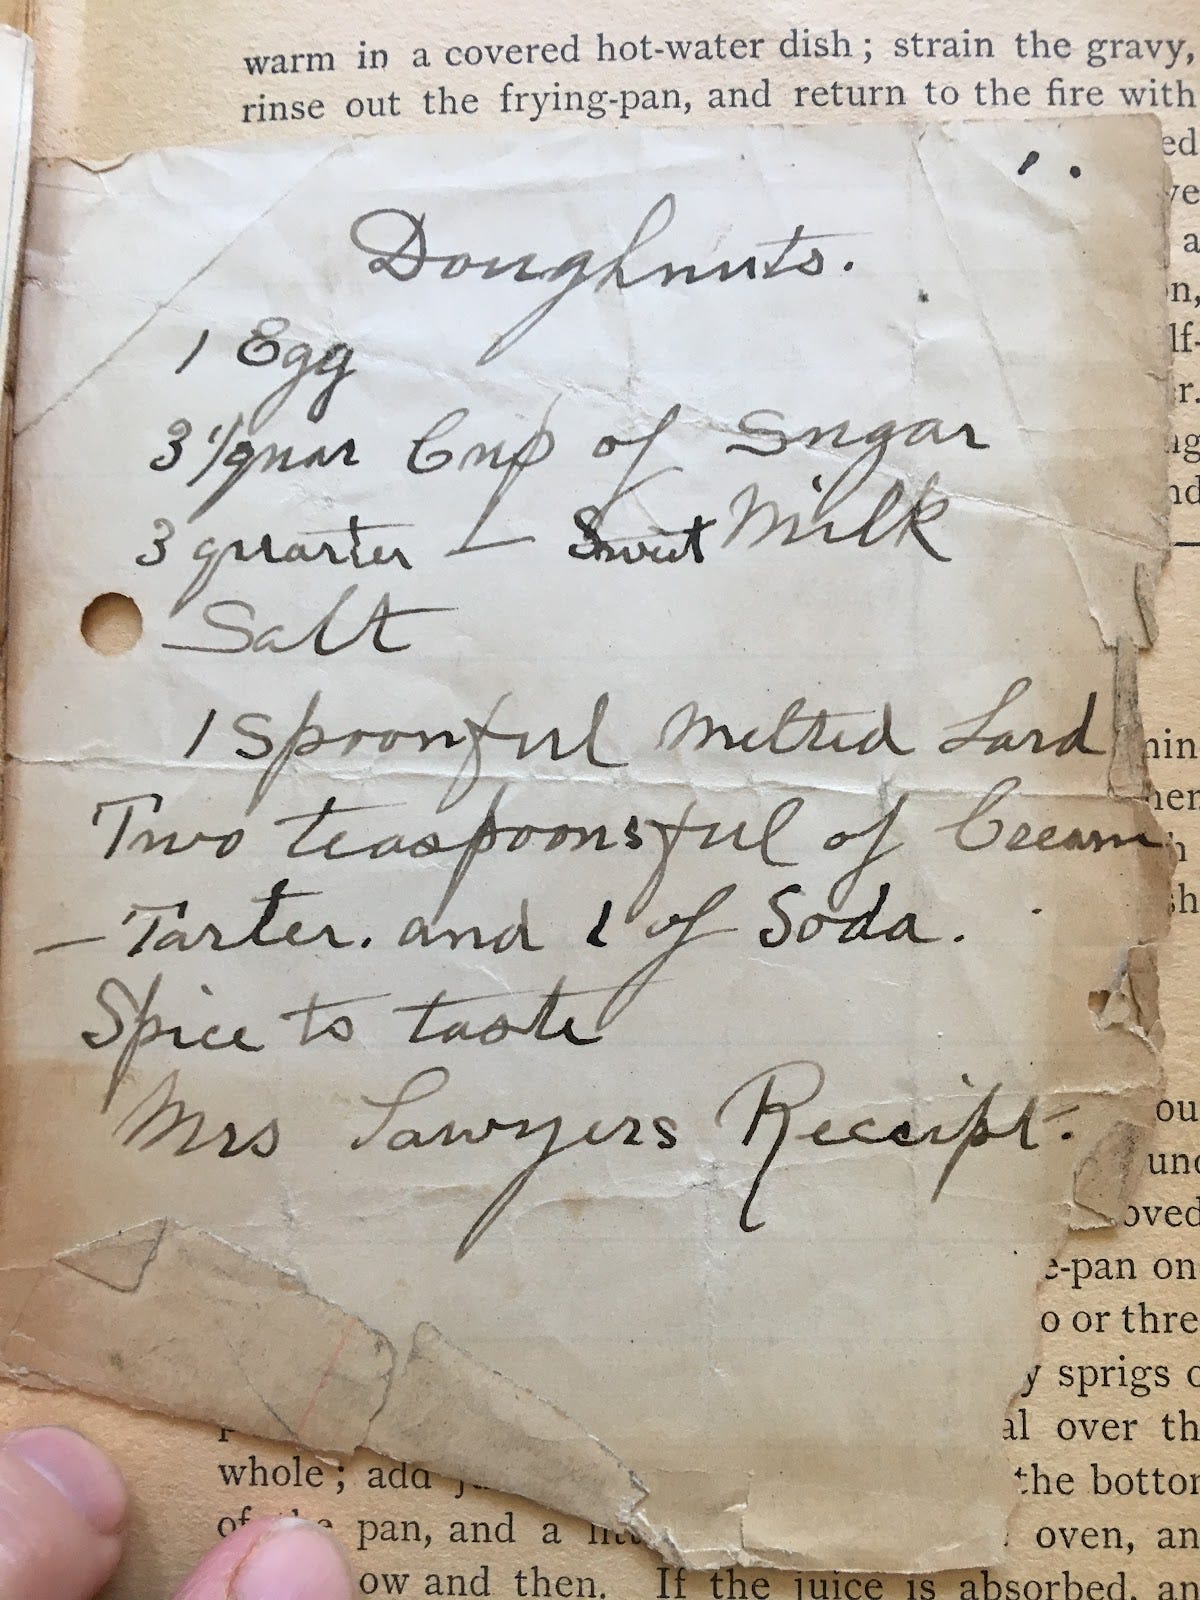 warm in a covered hot-water dish; strain the gravy,
rinse out the frying-pan, and return to the fire with
ed
ve
a
on,
lf-
r.
ng
nd
Doughnuts.
1 Egg
3 1/quar Cup of Sugar
3 quarter — Sweet Milk
Salt
1 Spoonful Melted Lard
Two teaspoonsful of Cream
— Tarter. and 1 of Soda.
Spice to taste
Mrs Sawyers Receipt.
nin
her
h
sh
ou
und
oved
e-pan on
o or thre
y sprigs o
al over th
whole; add the bottor
of the pan, and a oven, an
ow and then. If the juice is absorbed, an